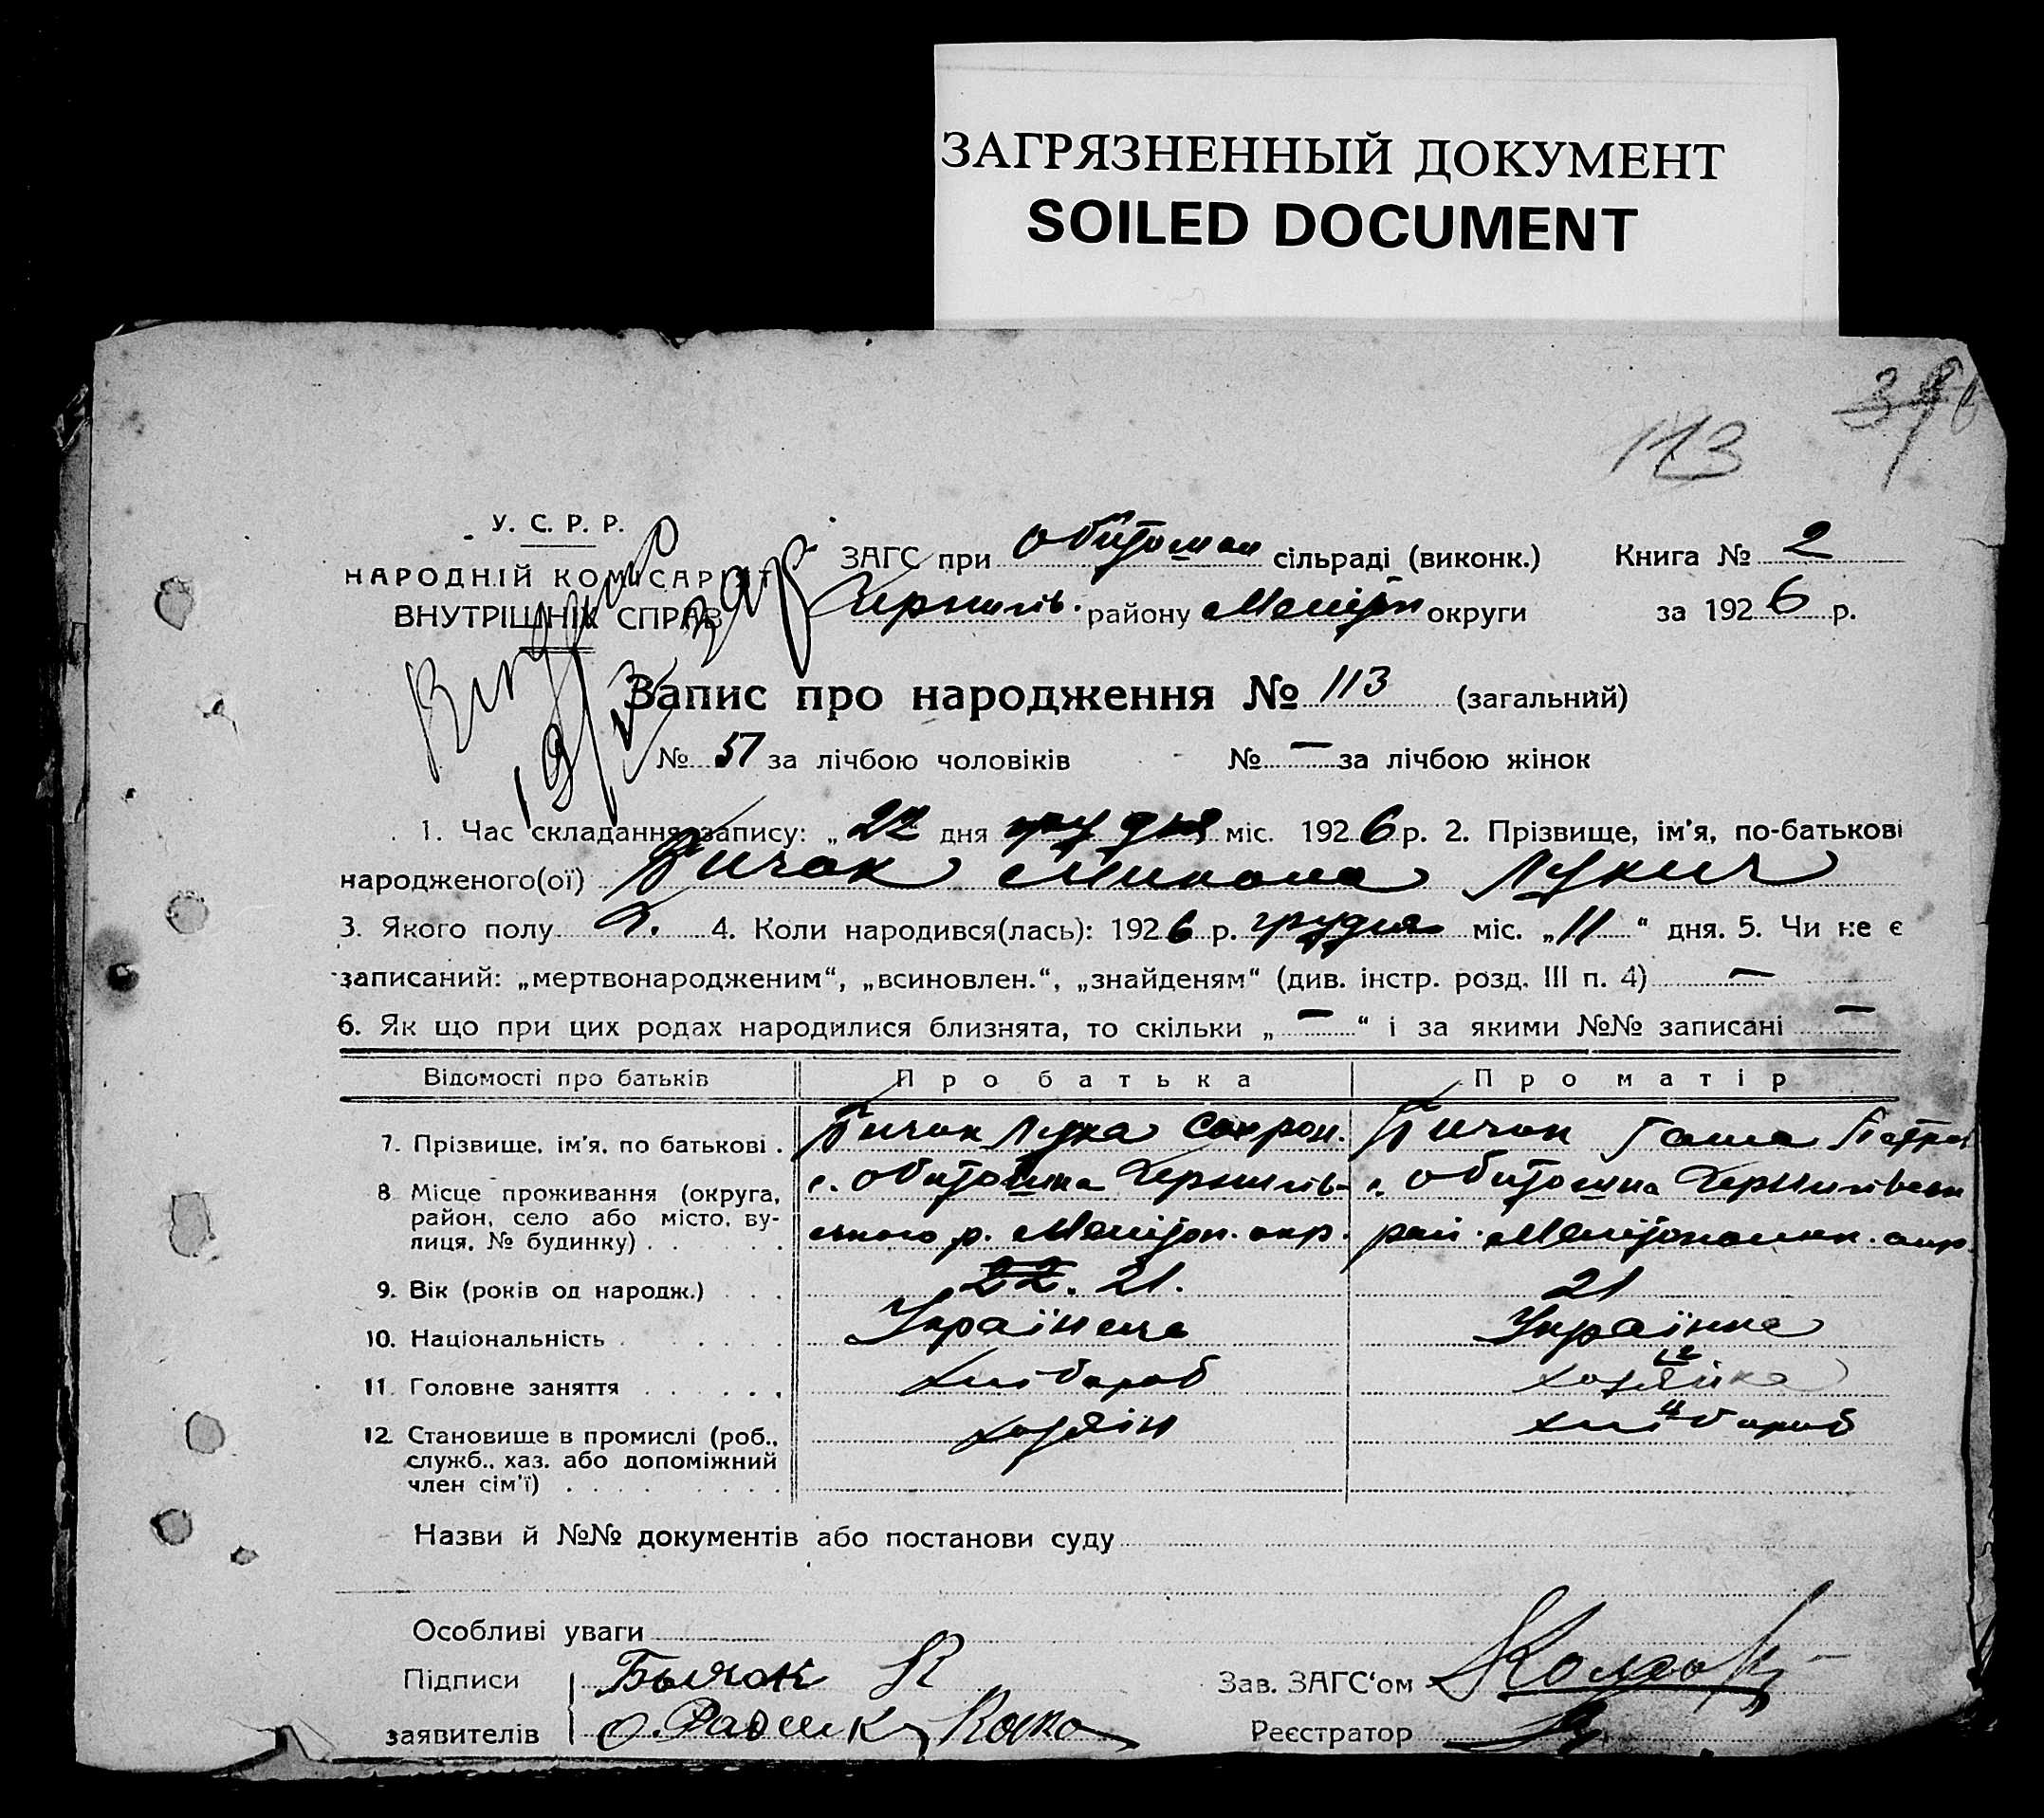 ЗАГРЯЗНЕННЫЙ ДОКУМЕНТ
SOILED DOCUMENT
113
У. С. Р. Р.
НАРОДНІЙ КОМІСАРІЯТ
ВНУТРІШНІХ СПРАВ
ЗАГС при Обиточан сільраді (виконк.) Книга № 2
Чернигів. району Меліт округи за 1926 р.
Запис про народження № 113 (загальний)
№ 57 за лічбою чоловіків № — за лічбою жінок
1. Час складання запису: „22 дня грудня міс. 1926 р. 2. Прізвище, ім'я, по-батькові
народженого(ої) Бичок Микола Лукич
3. Якого полу ч. 4. Коли народився(лась): 1926 р. грудня міс. „11“ дня. 5. Чи не є
записаний: „мертвонародженим“, „всиновлен.“, „знайденям“ (див. інстр. розд. III п. 4) —
6. Як що при цих родах народилися близнята, то скільки „—“ і за якими №№ записані —
Відомості про батьків Про батька Про матір
7. Прізвище, ім'я, по батькові . Бичок Лука Бичок Ганна Петров
8 Місце проживання (округа, район, село або місто, вулиця, № будинку) с. Обиточна Чернигівського р. Мелітоп. окр. с. Обиточна Чернигівськ рай. Мелітопольськ. окр.
9. Вік (років од народж.) 22. 21. 21
10. Національність Українець Українка
11. Головне заняття хлібороб хозяйка
12. Становище в промислі (роб., служб., хаз. або допоміжний член сім'ї) хозяін хлібороб
Назви й №№ документів або постанови суду
Особливі уваги
Підписи Бычок
заявителів
Зав. ЗАГС‘ом
Реєстратор